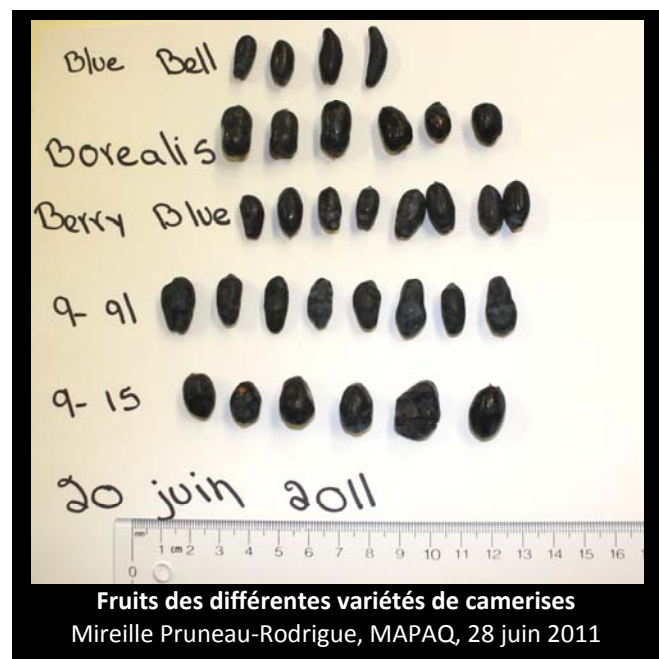 Blue Bell
Borealis
Berry Blue
9-91
9-15
20 juin 2011
mm
1 cm 2 3 4 5 6 7 8 9 10 11 12 13 14 15 16
0
Fruits des différentes variétés de camerises
Mireille Pruneau-Rodrigue, MAPAQ, 28 juin 2011